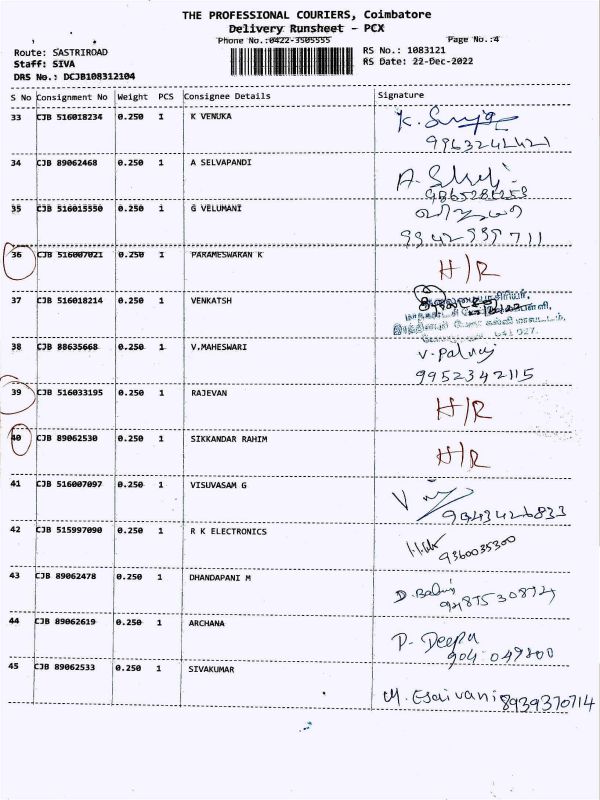 THE PROFESSIONAL COURIERS, Coimbatore
Delivery Runsheet - PCX
Phone No.:0422-3505555 Page No.:4
Route: SASTRIROAD RS No.: 1083121
Staff: SIVA RS Date: 22-Dec-2022
DRS No.: DCJB108312104
S No Consignment No Weight PCS Consignee Details Signature
33 CJB 516018234 0.250 1 K VENUKA
34 CJB 89062468 0.250 1 A SELVAPANDI
35 CJB 516015550 0.250 1 G VELUMANI
36 CJB 516007021 0.250 1 PARAMESWARAN K H/R
37 CJB 516018214 0.250 1 VENKATSH
38 CJB 88635668 0.250 1 V.MAHESWARI
9952342115
39 CJB 516033195 0.250 1 RAJEVAN H/R
40 CJB 89062530 0.250 1 SIKKANDAR RAHIM H/R
41 CJB 516007097 0.250 1 VISUVASAM G
42 CJB 515997090 0.250 1 R K ELECTRONICS
9360035300
43 CJB 89062478 0.250 1 DHANDAPANI M
44 CJB 89062619 0.250 1 ARCHANA P. Deepa
45 CJB 89062533 0.250 1 SIVAKUMAR
M. Esaivani 8939370714